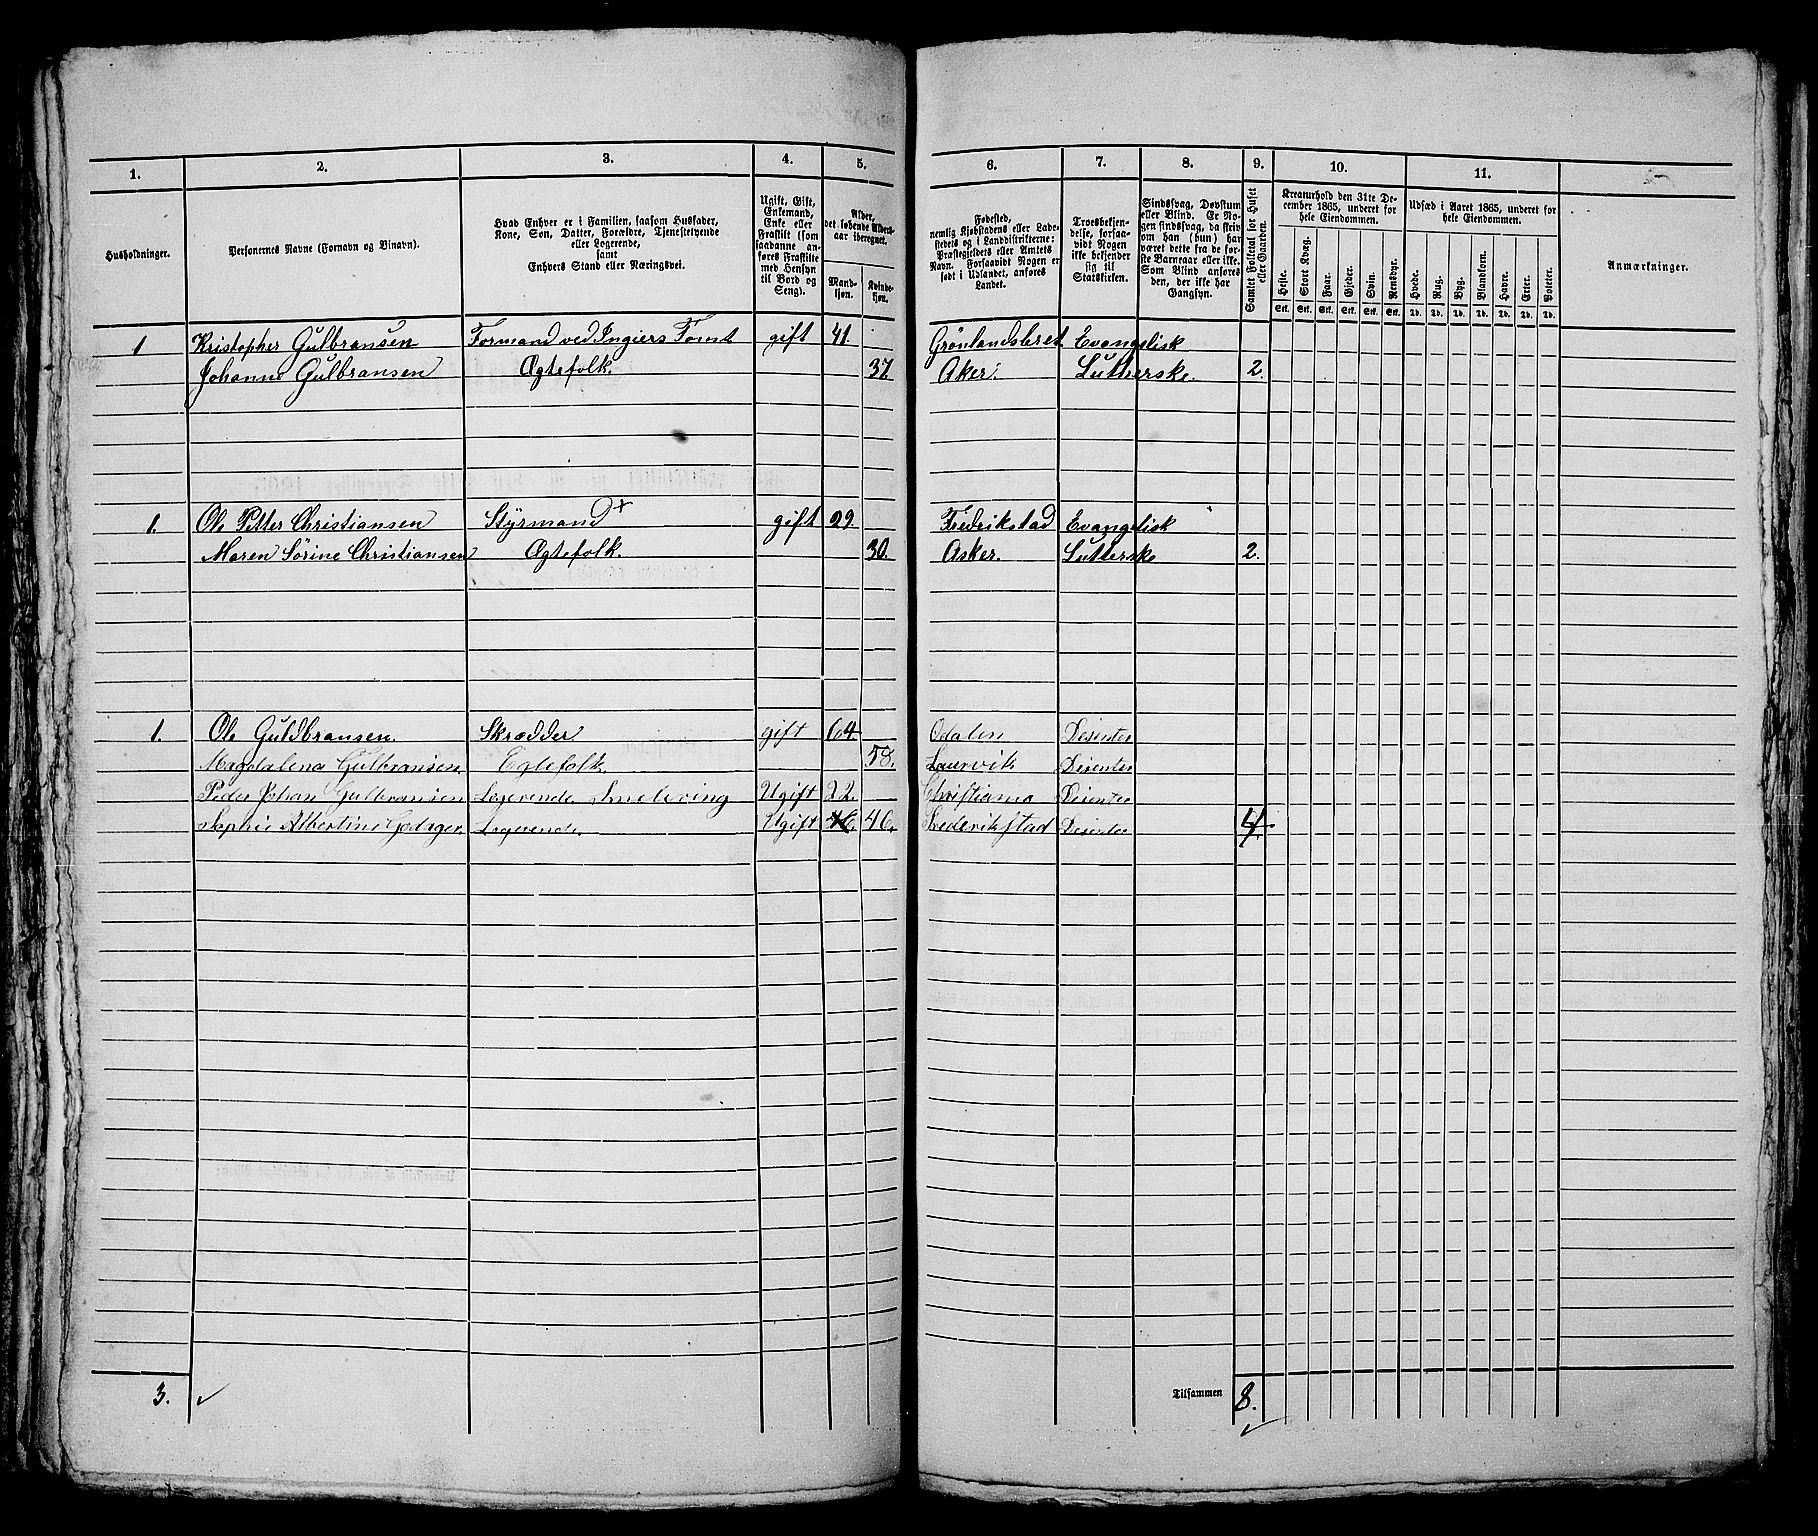 1. 2. 3. 4. 5. 6. 7. 8. 9. 10. 11.
Husholdninger.
Personernes Navne (Fornavn og Binavn).
Hvad Enhver er i Familien, saasom Husfader,
Kone, Søn, Datter, Forældre, Tjenestetyende
eller Logerende,
samt
Enhvers Stand eller Næringsvei.
Ugift, Gift,
Enkemand,
Enke eller
Fraskilt (som
saadanne an-
føres Fraskilte
med Hensyn
til Bord og
Seng).
Alder,
det løbende Alders-
aar iberegnet.
Mand-
kjøn.
Kvinde-
kjøn.
Fødested,
nemlig Kjøbstadens eller Lade-
stedets og i Landdistrikterne:
Præstegjeldets eller Amtets
Navn. Forsaavidt Nogen er
født i Udlandet, anføres
Landet.
Troesbekjen-
delse, forsaa-
vidt Nogen
ikke bekjender
sig til
Statskirken.
Sindssvag, Døvstum
eller Blind. Er No-
gen sindssvag, da skriv
om han (hun) har
været dette fra de før-
ste Barneaar eller ikke.
Som Blind anføres
den, der ikke har
Gangsyn.
Samlet Folketal for Huset
eller Gaarden.
Kreaturhold den 31te De-
cember 1865, underet for
hele Eiendommen.
Heste. Stort Kvæg. Faar. Gjeder. Svin. Rensdyr.
Stk. Stk. Stk. Stk. Stk. Stk.
Udsæd i Aaret 1865, underet for
hele Eiendommen.
Hvede. Rug. Byg. Blandkorn. Havre. Erter. Poteter.
Td. Td. Td. Td. Td. Td. Td.
Anmærkninger.
1 Kristopher Gulbransen Formand ved Ingiers Tomt gift 41. Grönlandsleret Evangelisk
Johanne Gulbransen Ægtefolk. 37 Aker. Lutherske. 2.
1. Ole Petter Christiansen Styrmand + gift 29. Fredrikstad Evangelisk
Maren Sørine Christiansen Ægtefolk. 30. Asker. Lutterske 2.
1. Ole Guldbransen. Skrædder gift 64 Odalen Desenter
Magdalena Gulbransen. Egtefolk. 58. Laurvik Desenter
Peder Johan Gulbransen Logerende. Ugift 22. Christiania Desenter
Sophie Albertine Logerende. Ugift 46. Frederikstad Desenter 4.
3. Tilsammen 8.